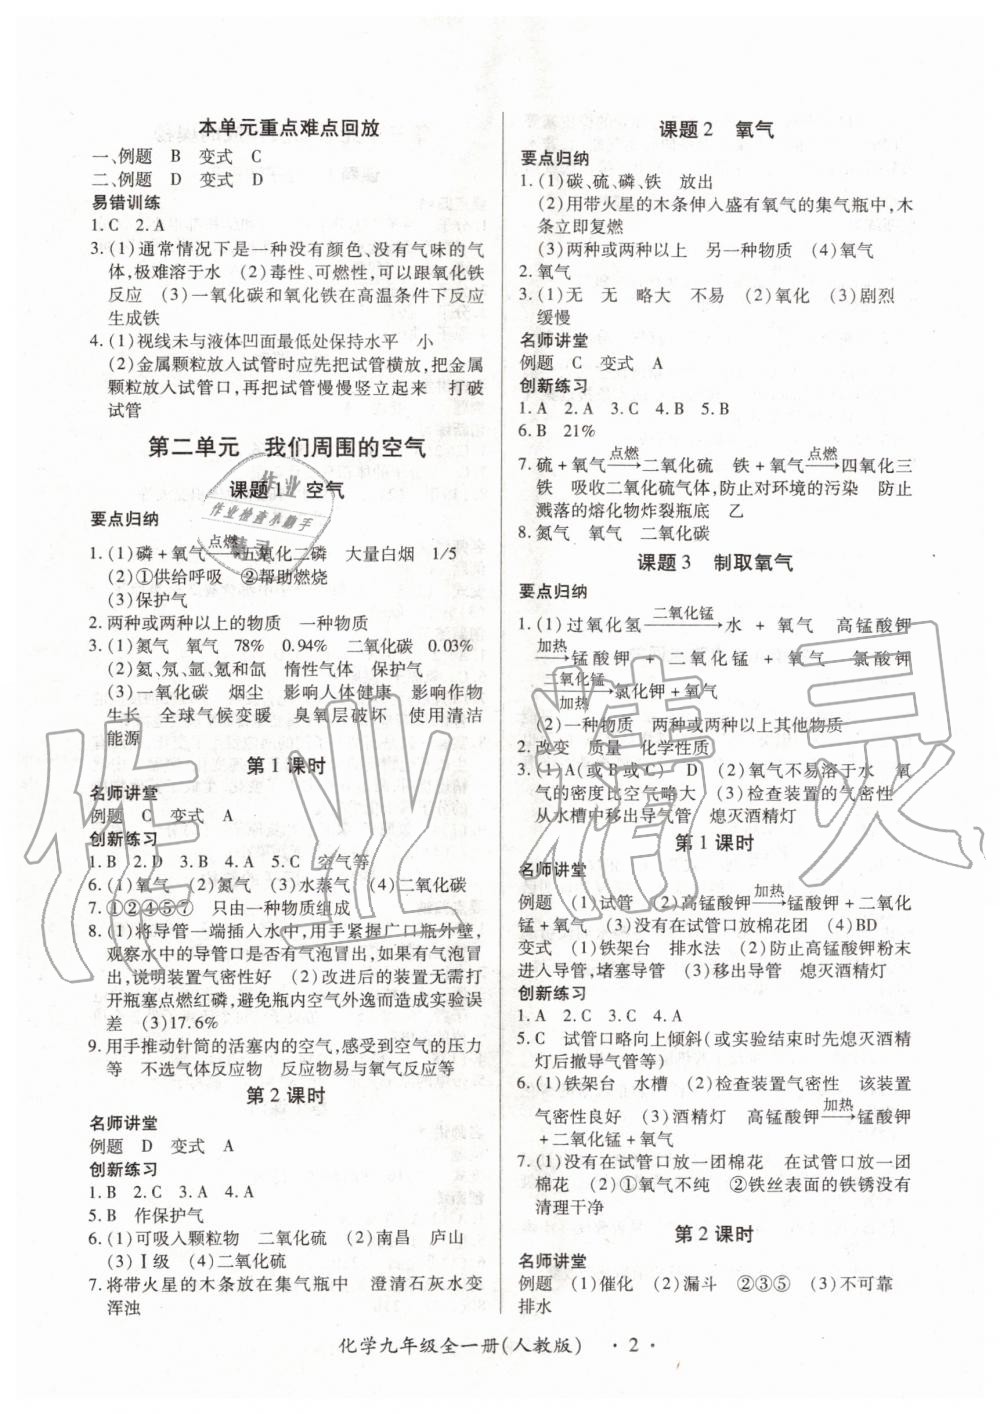 本单元重点难点回放
一、例题 B 变式 C
二、例题 D 变式 D
易错训练
1.C 2.A
3.(1)通常情况下是一种没有颜色、没有气味的气
体,极难溶于水 (2)毒性、可燃性,可以跟氧化铁
反应 (3)一氧化碳和氧化铁在高温条件下反应
生成铁
4.(1)视线未与液体凹面最低处保持水平 小
(2)金属颗粒放入试管时应先把试管横放,把金属
颗粒放入试管口,再把试管慢慢竖立起来 打破
试管
第二单元 我们周围的空气
课题1 空气
要点归纳
1.(1)磷+氧气 点燃→ 五氧化二磷 大量白烟 1/5
(2)①供给呼吸 ②帮助燃烧
(3)保护气
2.两种或两种以上的物质 一种物质
3.(1)氮气 氧气 78% 0.94% 二氧化碳 0.03%
(2)氦、氖、氩、氪和氙 惰性气体 保护气
(3)一氧化碳 烟尘 影响人体健康 影响作物
生长 全球气候变暖 臭氧层破坏 使用清洁
能源
第1课时
名师讲堂
例题 C 变式 A
创新练习
1.B 2.D 3.B 4.A 5.C 空气等
6.(1)氧气 (2)氮气 (3)水蒸气 (4)二氧化碳
7.①②④⑤⑦ 只由一种物质组成
8.(1)将导管一端插入水中,用手紧握广口瓶外壁,
观察水中的导管口是否有气泡冒出,如果有气泡冒
出,说明装置气密性好 (2)改进后的装置无需打
开瓶塞点燃红磷,避免瓶内空气外逸而造成实验误
差 (3)17.6%
9.用手推动针筒的活塞内的空气,感受到空气的压力
等 不选气体反应物 反应物易与氧气反应等
第2课时
名师讲堂
例题 D 变式 A
创新练习
1.B 2.C 3.A 4.A
5.B 作保护气
6.(1)可吸入颗粒物 二氧化硫 (2)南昌 庐山
(3)Ⅰ级 (4)二氧化硫
7.将带火星的木条放在集气瓶中 澄清石灰水变
浑浊
课题2 氧气
要点归纳
1.(1)碳、硫、磷、铁 放出
(2)用带火星的木条伸入盛有氧气的集气瓶中,木
条立即复燃
(3)两种或两种以上 另一种物质 (4)氧气
2.氧气
3.(1)无 无 略大 不易 (2)氧化 (3)剧烈
缓慢
名师讲堂
例题 C 变式 A
创新练习
1.A 2.A 3.C 4.B 5.B
6.B 21%
7.硫+氧气 点燃→ 二氧化硫 铁+氧气 点燃→ 四氧化三
铁 吸收二氧化硫气体,防止对环境的污染 防止
溅落的熔化物炸裂瓶底 乙
8.氮气 氧气 二氧化碳
课题3 制取氧气
要点归纳
1.(1)过氧化氢 二氧化锰→ 水 + 氧气 高锰酸钾
加热→ 锰酸钾 + 二氧化锰 + 氧气 氯酸钾
二氧化锰 加热→ 氯化钾+氧气
(2)一种物质 两种或两种以上其他物质
2.改变 质量 化学性质
3.(1)A(或B或C) D (2)氧气不易溶于水 氧
气的密度比空气略大 (3)检查装置的气密性
从水槽中移出导气管 熄灭酒精灯
第1课时
名师讲堂
例题 (1)试管 (2)高锰酸钾 加热→ 锰酸钾+二氧化
锰+氧气 (3)没有在试管口放棉花团 (4)BD
变式 (1)铁架台 排水法 (2)防止高锰酸钾粉末
进入导管,堵塞导管 (3)移出导管 熄灭酒精灯
创新练习
1.A 2.C 3.C 4.A
5.C 试管口略向上倾斜(或实验结束时先熄灭酒精
灯后撤导气管等)
6.(1)铁架台 水槽 (2)检查装置气密性 该装置
气密性良好 (3)酒精灯 高锰酸钾 加热→ 锰酸钾
+二氧化锰+氧气
7.(1)没有在试管口放一团棉花 在试管口放一团
棉花 (2)①氧气不纯 ②铁丝表面的铁锈没有
清理干净
第2课时
名师讲堂
例题 (1)催化 (2)漏斗 ②③⑤ (3)不可靠
排水
化学九年级全一册(人教版) ·2·
作业精灵
作业
作业检查小助手
精灵